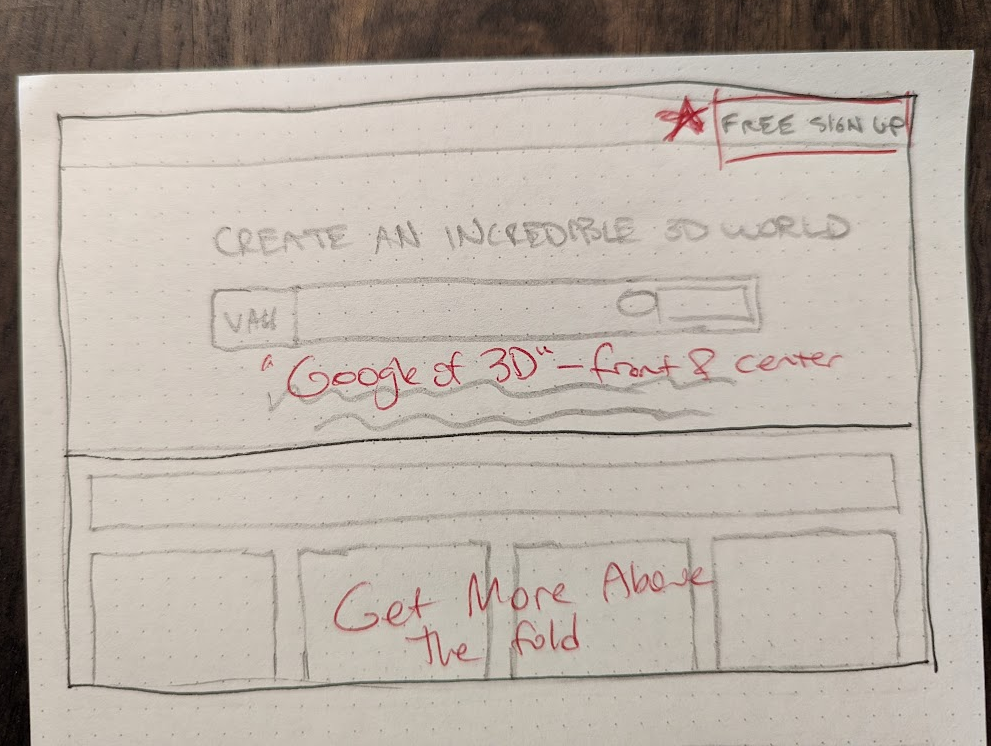 FREE SIGN UP
CREATE AN INCREDIBLE 3D WORLD
"Google of 3D" – front & center
Get More Above
the fold